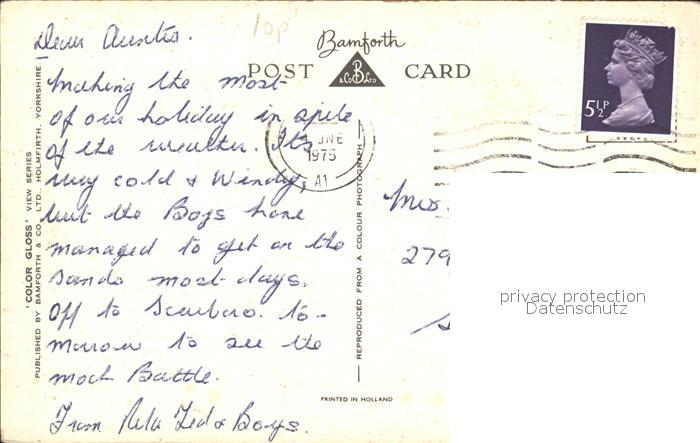 Dear Auntie.
Making the most
of our holiday in spite
of the weather. Its
very cold & Windy,
but the Boys have
managed to get on the
sands most days.
Off to Scarboro. to-
morrow to see the
mock Battle.
From Rita Ted & Boys.
10p
Bamforth
POST CARD
& Co B LTD
5½P
UNE
1975
A1
Mrs.
279
privacy protection
Datenschutz
'COLOR GLOSS' VIEW SERIES
PUBLISHED BY BAMFORTH & CO LTD., HOLMFIRTH, YORKSHIRE
REPRODUCED FROM A COLOUR PHOTOGRAPH
PRINTED IN HOLLAND